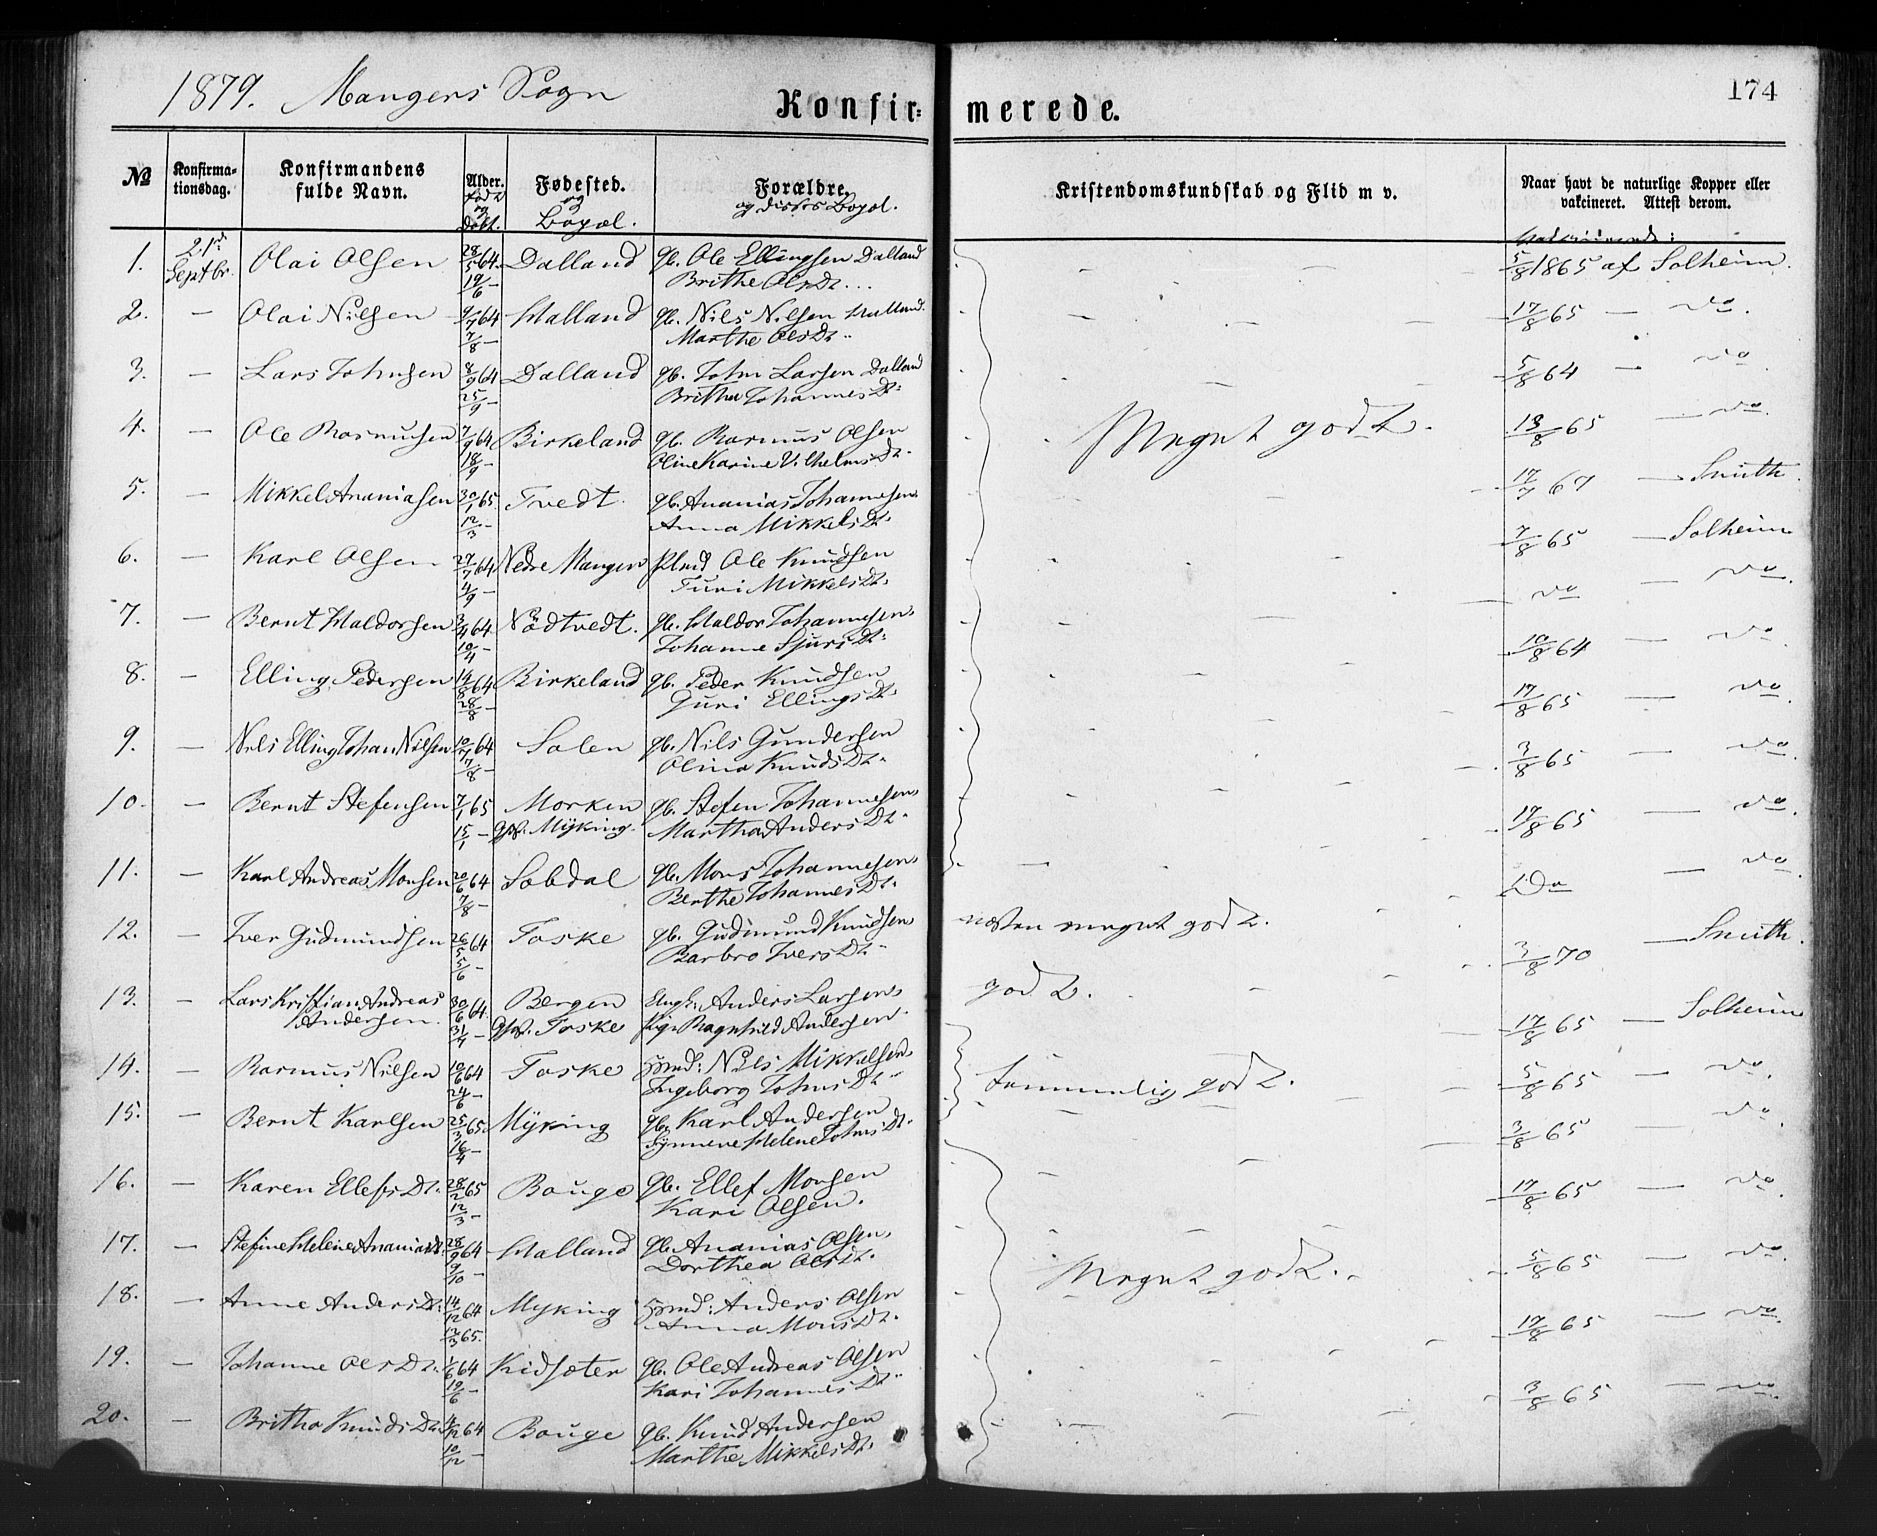 1879. Mangers Sogn
Konfirmerede.
174
№ Konfirmationsdag. Konfirmandens fulde Navn. Alder. født og døbt. Fødested. og Bopæl. Forældre. og disses Bopæl. Kristendomskundskab og Flid m v. Naar havt de naturlige Kopper eller vakcineret. Attest derom.
1. 21de Septbr. Olai Olsen 28/5 64. Dalland gb. Ole Ellingsen Dalland 5/8 1865 af Solheim.
19/6 – Brithe Olsdt.
2. – Olai Nilsen 9/7 64 Halland gb. Nils Nilsen Halland. 17/8 65 – do.
7/8 – Marthe Olsdt.
3. – Lars Johnsen 8/9 64 Dalland gb. John Larsen Dalland 5/8 64 – do
25/9 – Brithe Johannesdt.
4. – Ole Rasmusen 7/9 64 Birkeland gb. Rasmus Olsen Meget godt. 13/8 65 – do.
18/9 – Oline Karine Vilhelmsdt.
5. – Mikkel Ananiasen 30/1 65 Tvedt. gb. Ananias Johannesen 17/7 67 – Smith.
12/3 – Anna Mikkelsdt.
6. – Karl Olsen 27/7 64 Nedre Manger Plmd Ole Knudsen 7/8 65 – Solheim
4/9 – Turi Mikkelsdt.
7. – Bernt Haldorsen 3/4 64 Nødtvedt. gb. Haldor Johannesen do – do.
10/4 – Johanne Sjursdt.
8. – Elling Pedersen 14/8 64 Birkeland gb. Peder Knudsen 10/8 64 – do.
28/8 – Guri Ellingsdt.
9. – Nils Elling Johan Nilsen 10/7 64 Solen gb. Nils Gundersen 17/8 65 – do.
7/8 Olina Knudsdt.
10. – Bernt Stefensen 7/1 65 Morken gb. Stefen Johannesen 3/8 65 – do.
15/1 – Myking. Martha Andersdt.
11. – Karl Andreas Monsen 20/6 64 Sobdal gb. Mons Johannesen 17/8 65 – do.
7/8 – Berthe Johannesdt.
12. – Iver Gudmundsen 26/5 64 Toske gb. Gudmund Knudsen næsten meget godt. Do – do.
5/6 – Barbro Iversdt.
13. – Lars Kristian Andreas 30/6 64. Bergen Ungk: Anders Larsen godt. 3/8 70 – Smith.
Andersen. 31/7 – Toske Pige Ragnhild Andersen.
14. – Rasmus Nilsen 10/6 64 Toske Hsmd: Nils Mikkelsen temmelig godt. 17/8 65 – Solheim
24/6 – Ingeborg Johnsdt.
15. – Bernt Karlsen 25/3 65. Myking gb. Karl Andersen 5/8 65 – do.
16/4 – Synneve Helene Johnsdt.
16. – Karen Ellefsdt. 28/2 65 Bouge gb. Ellef Monsen 3/8 65 – do
12/3 – Kari Olsen.
17. – Stefine Helene Ananiasdt. 28/9 64 Halland gb. Ananias Olsen Meget godt. 17/8 65 – do.
9/10 – Dorthea Olsdt.
18. – Anne Andersdt. 14/12 64 Myking Hsmd: Anders Olsen 5/8 65 – do.
12/3 65. Anna Monsdt.
19. – Johanne Olsdt. 1/6 64 Kidsæter gb. Ole Andreas Olsen 17/8 65 – do.
19/6 – Kari Johannesdt.
20. – Britha Knudsdt. 4/12 64 Bouge gb. Knud Andersen 3/8 65 – do.
10/12 – Marthe Mikkelsdt.